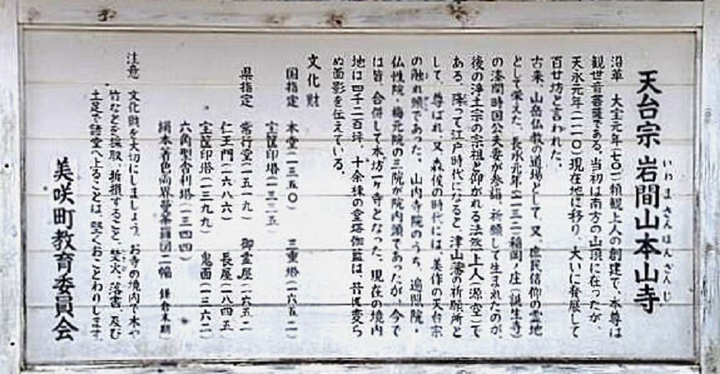 天台宗 岩間山本山寺
いわまさんほんざんじ
沿革 大宝元年(七〇一)頼観上人の創建で、本尊は
観世音菩薩である。当初は南方の山頂に在ったが、
天永元年(一一一〇)現在地に移り、大いに発展して
百廿坊と言われた。
古来、山岳仏教の道場として、又、庶民信仰の霊地
として栄えた。長承元年(一一三二)稲岡ノ庄(誕生寺)
の漆間時国公夫妻が参詣、祈願して生まれたのが、
後の浄土宗の宗祖と仰がれる法然上人(源空)で
ある。降って江戸時代になると、津山藩の祈願所と
して、尊ばれ、又森後の時代には、美作の天台宗
の触れ頭であった。山内寺院のうち、遍照院・
仏性院・梅元院の三院が院内頭であったが、今で
は皆、合併して本坊一ヶ寺となった。現在の境内
地は四千二百坪、十余棟の堂塔伽藍は、昔に変ら
ぬ面影を伝えている。
文化財
国指定 本堂(一三五〇) 三重塔(一六五二)
宝篋印塔(一三三五)
県指定 常行堂(一五一九) 御霊屋(一六五二)
仁王門(一六八六) 長屋(一八四五)
宝篋印塔(一三九九) 鬼面(一三六二)
六角型舎利塔(一三四四)
絹本著色両界曼荼羅図二幅 鎌倉末期)
注意 文化財を大切にしましょう。お寺の境内で木や
竹などを採取、折損すること、焚火、落書、及び
土足で諸堂へ上ることは、堅くおことわりします。
美咲町教育委員会